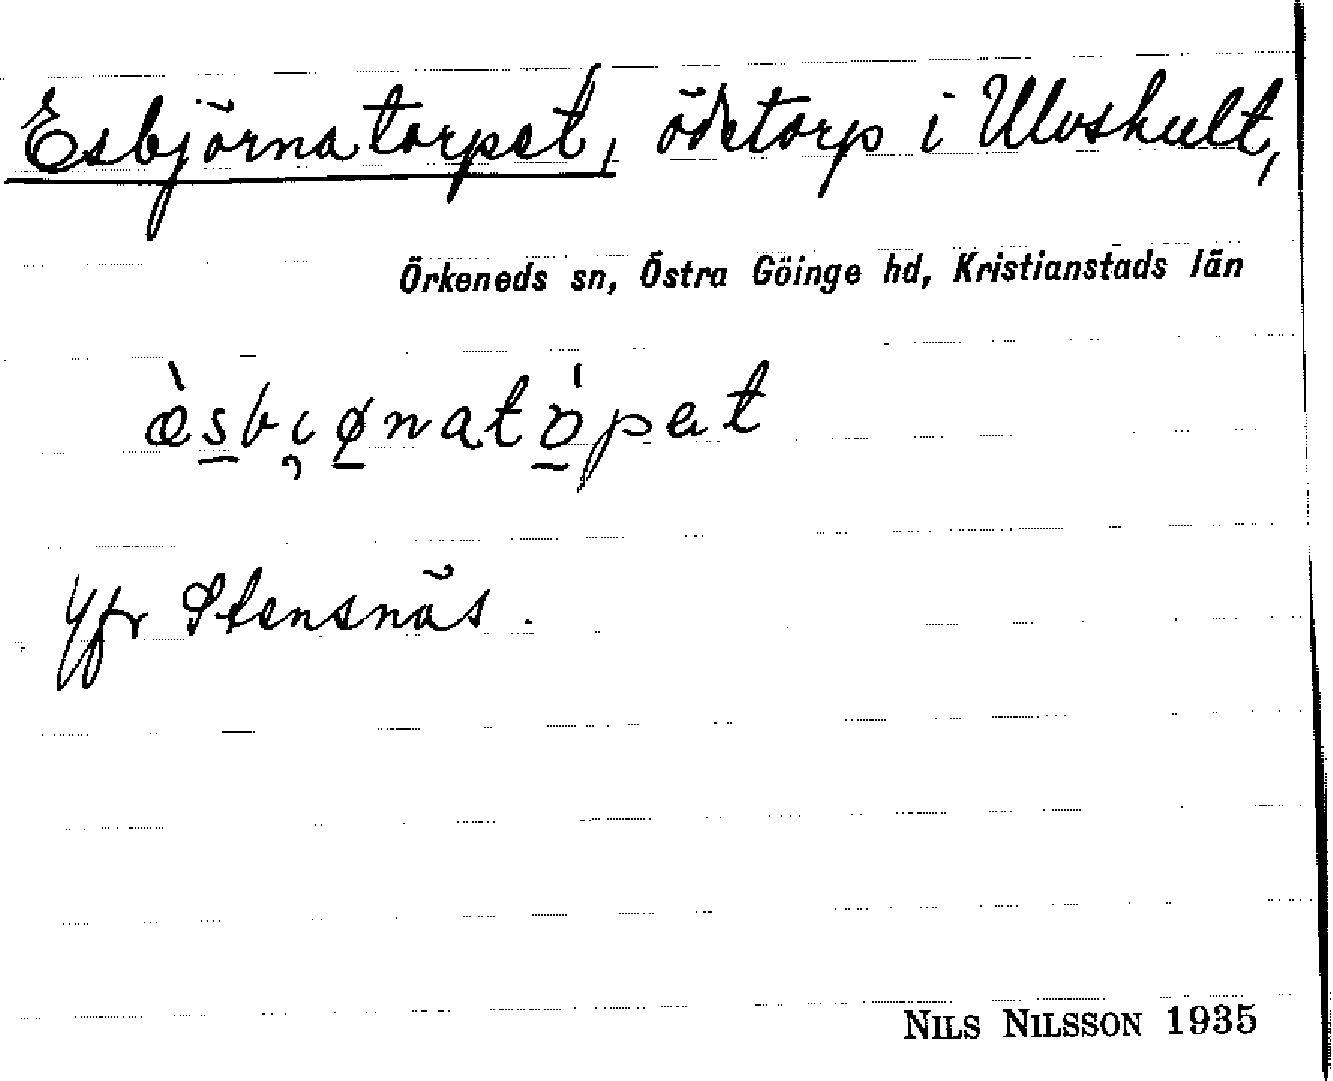 Esbjörnatorpet, ödetorp i Ulvskult,
Örkeneds sn, Östra Göinge hd, Kristianstads län
æ̀sbi̯ønatɒ́pət
Jfr Stensnäs.
NILS NILSSON 1935